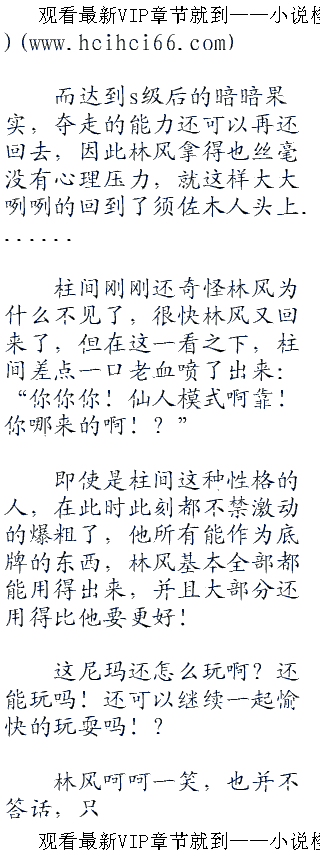 观看最新VIP章节就到——小说
)(www.hcihci66.com)
而达到s级后的暗暗果
实，夺走的能力还可以再还
回去，因此林风拿得也丝毫
没有心理压力，就这样大大
咧咧的回到了须佐木人头上.
......
柱间刚刚还奇怪林风为
什么不见了，很快林风又回
来了，但在这一看之下，柱
间差点一口老血喷了出来：
“你你你！仙人模式啊靠！
你哪来的啊！？”
即使是柱间这种性格的
人，在此时此刻都不禁激动
的爆粗了，他所有能作为底
牌的东西，林风基本全部都
能用得出来，并且大部分还
用得比他要更好！
这尼玛还怎么玩啊？还
能玩吗！还可以继续一起愉
快的玩耍吗！？
林风呵呵一笑，也并不
答话，只
观看最新VIP章节就到——小说